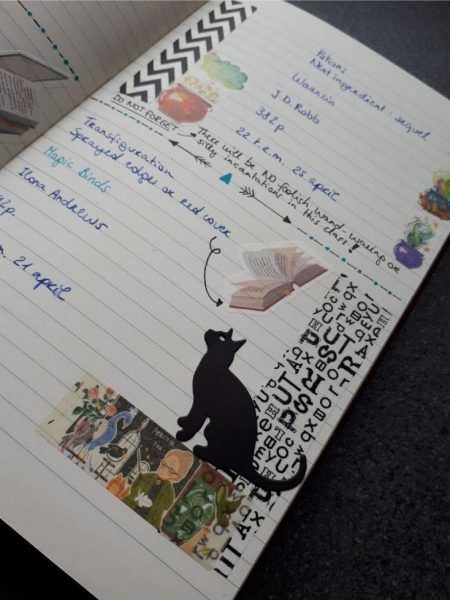 Potions
Next ingredient: sequel
Waanzin
J.D. Robb
382p.
22 t.e.m. 25 april
DO NOT FORGET
There will be NO foolish wand-waving or
silly incantations in this class!
Transfiguration
Sprayed edges or red cover
Magic Binds
Ilona Andrews
2p
m. 21 april